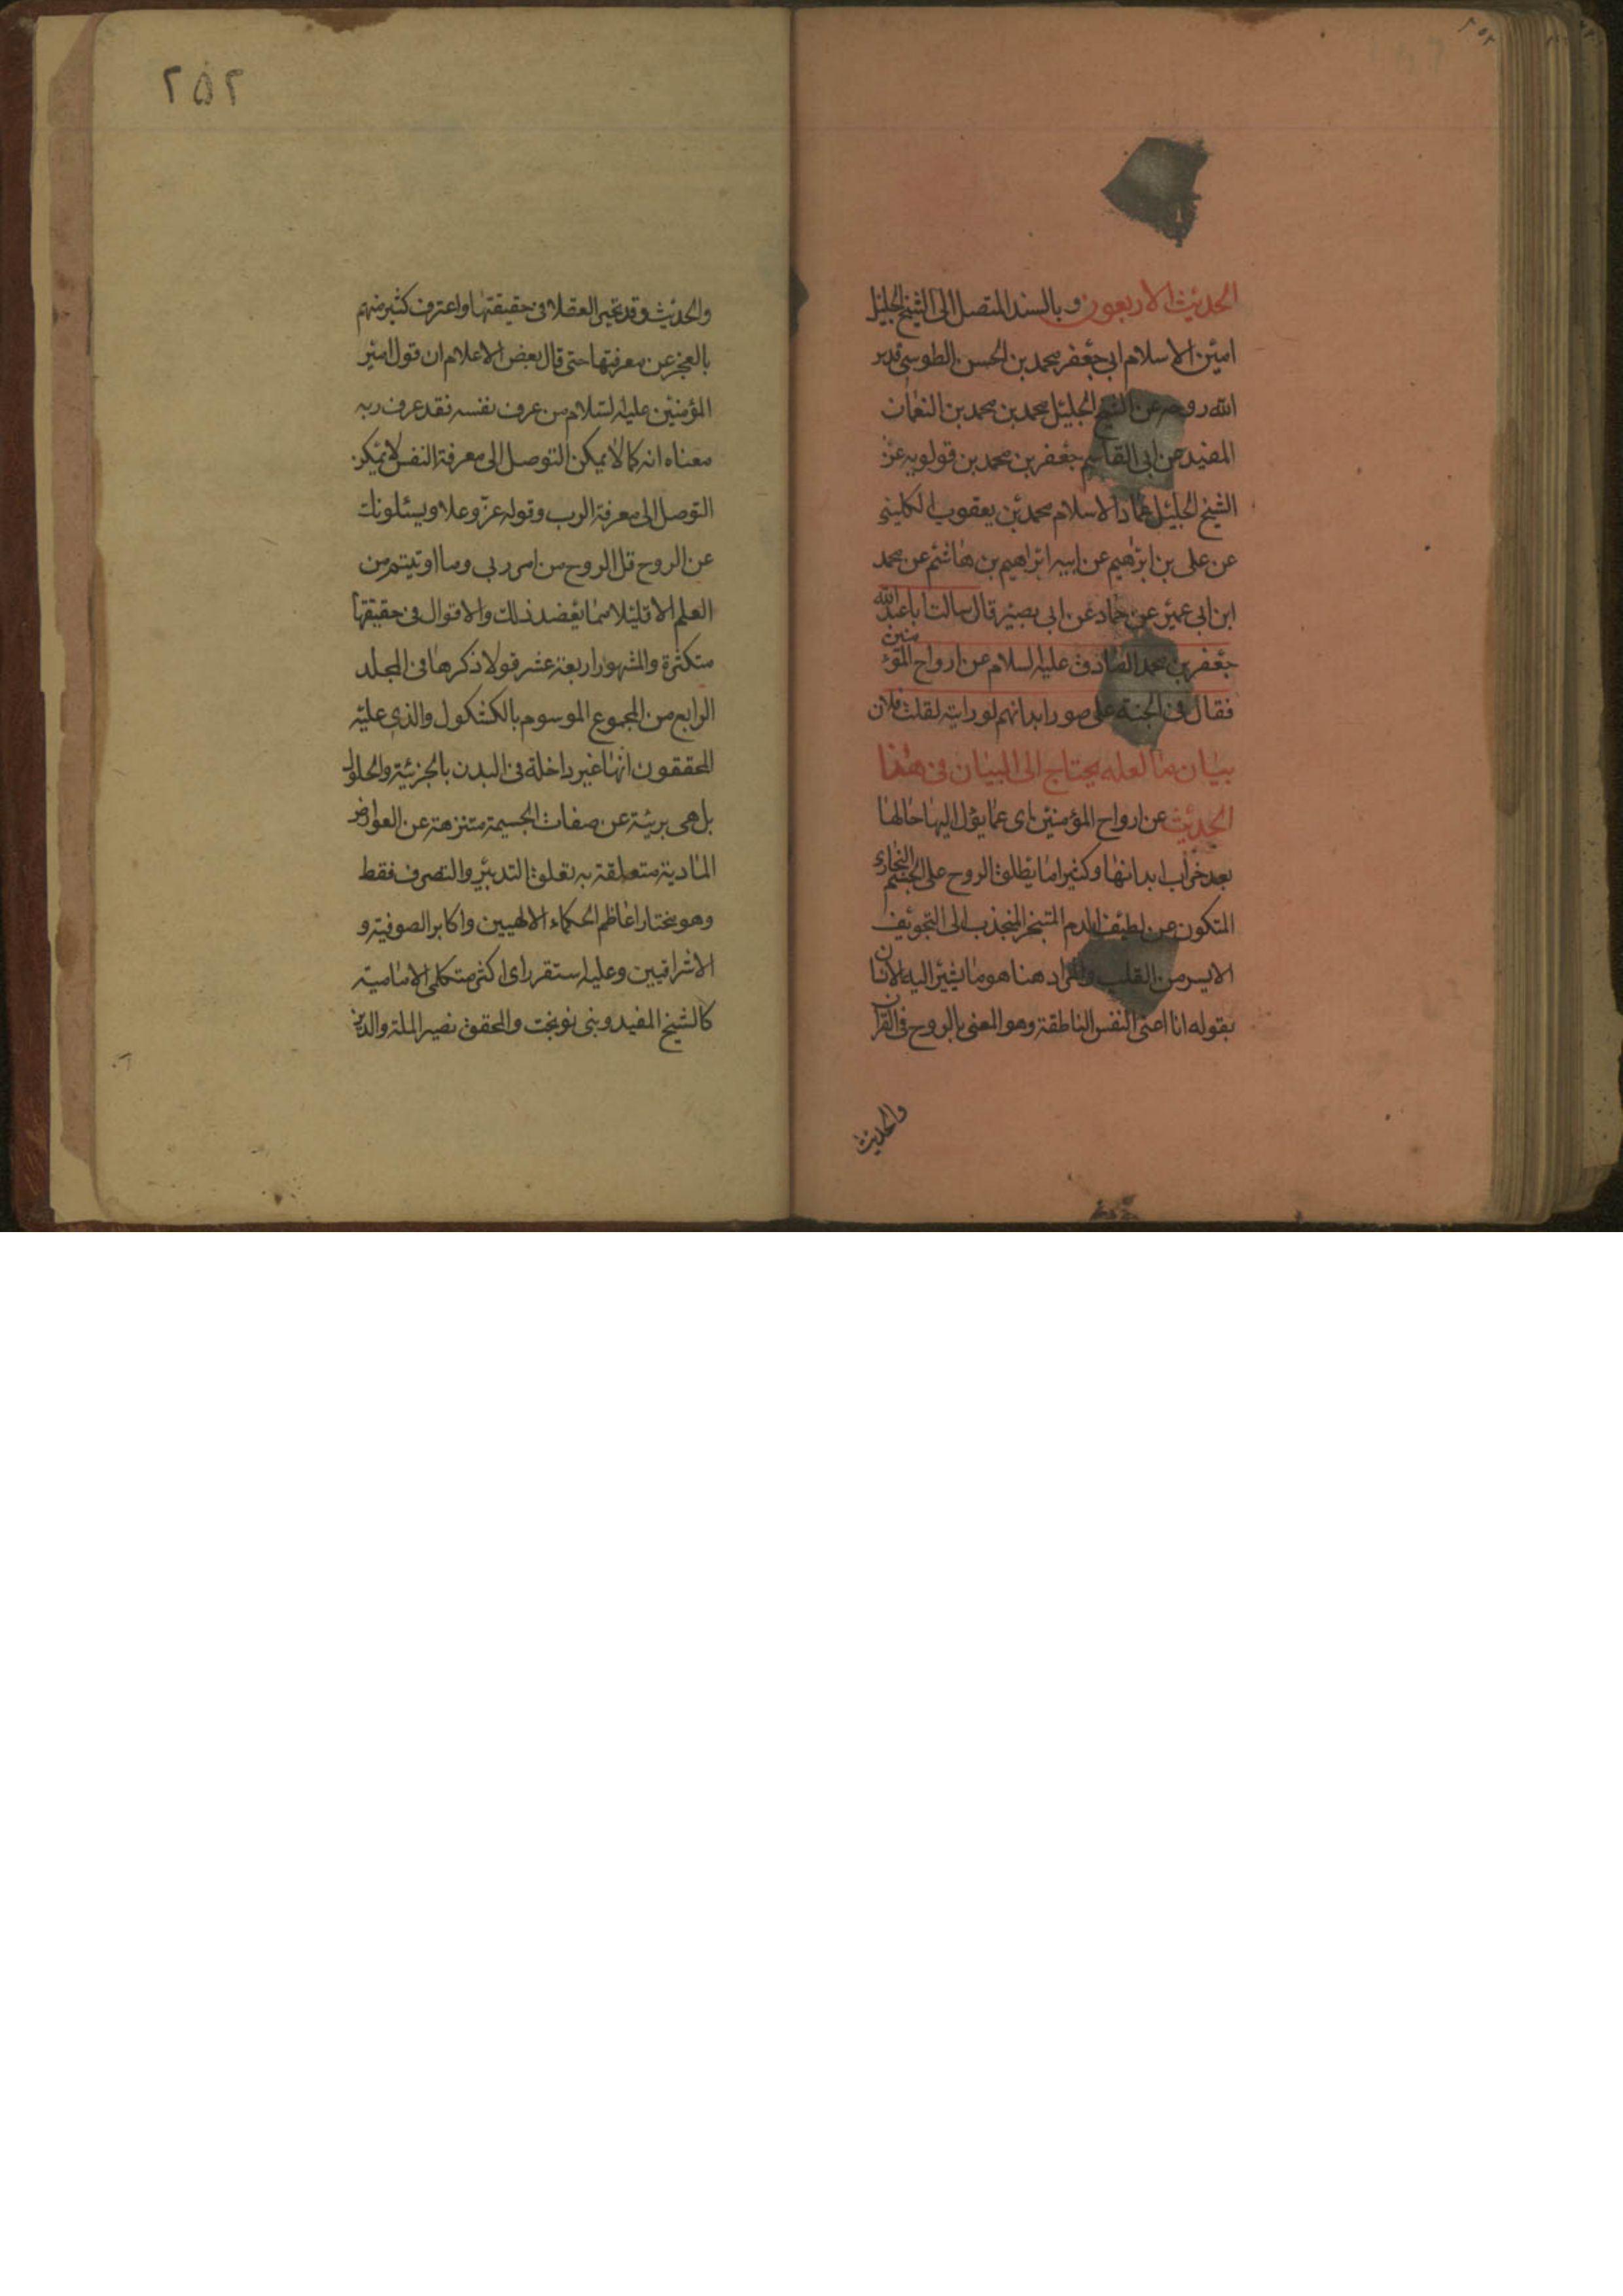 ٢٥٢
الحديث الاربعون وبالسند المتصل الى الشيخ الجليل
امين الاسلام ابى جعفر محمد بن الحسن الطوسى قدس
الله روحه عن الشيخ الجليل محمد بن محمد بن النعمان
المفيد عن ابى القاسم جعفر بن محمد بن قولويه عن
الشيخ الجليل عماد الاسلام محمد بن يعقوب الكلينى
عن على بن ابرهيم عن ابيه ابراهيم بن هاشم عن محمد
ابن ابى عمير عن حماد عن ابى بصير قال سالت ابا عبد الله
جعفر بن محمد الصادق عليه السلام عن ارواح المؤمنين
فقال فى الجنة على صور ابدانهم لو رايته لقلت فلان
بيان ما لعله يحتاج الى البيان فى هذا
الحديث عن ارواح المؤمنين اى عما يؤل اليها حالها
بعد خراب ابدانها وكثيرا ما يطلق الروح على الجسم البخارى
المتكون عن لطيف الدم المتبخر المنجذب الى التجويف
الايسر من القلب والمراد هنا هو ما يشير اليه الانسان
بقوله انا اعنى النفس الناطقة وهو المعنى بالروح فى القرآن
والحديث
٢٥٢
والحديث وقد تحير العقلا فى حقيقتها واعترف كثير منهم
بالعجز عن معرفتها حتى قال بعض الاعلام ان قول امير
المؤمنين عليه السلام من عرف نفسه فقد عرف ربه
معناه انه كما لا يمكن التوصل الى معرفة النفس لا يمكن
التوصل الى معرفة الرب وقوله عز وعلا ويسئلونك
عن الروح قل الروح من امر ربى وما اوتيتم من
العلم الا قليلا مما يعضد ذلك والاقوال فى حقيقتها
متكثرة والمشهور اربعة عشر قولا ذكرها فى المجلد
الرابع من المجموع الموسوم بالكشكول والذى عليه
المحققون انها غير داخلة فى البدن بالجزئية والحلول
بل هى بريئة عن صفات الجسيمة متنزهة عن العوارض
المادية متعلقة به تعلق التدبير والتصرف فقط
وهو مختار اعاظم الحكماء الالهيين واكابر الصوفية و
الاشراقيين وعليه استقر راى اكثر متكلمى الامامية
كالشيخ المفيد وبنى نوبخت والمحقق نصير الملة والدين